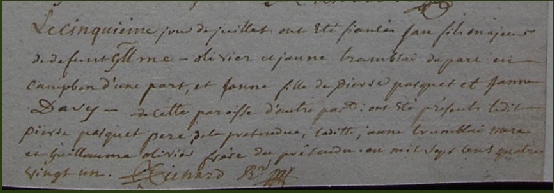 Le cinquième jour de juillet ont été fiancés jan fils majeur
de defunt Gllme - olivier et janne tramblai du pare en
campbon d'une part, et janne fille de pierre pasquet et janne
Davy - de cette paroisse d'autre part : ont été présents ledit
pierre pasquet pere de la pretendue, laditte janne tramblai mere
et Guillaume olivier frère du prétendu. an mil sept cent quatre
vingt un. Richard